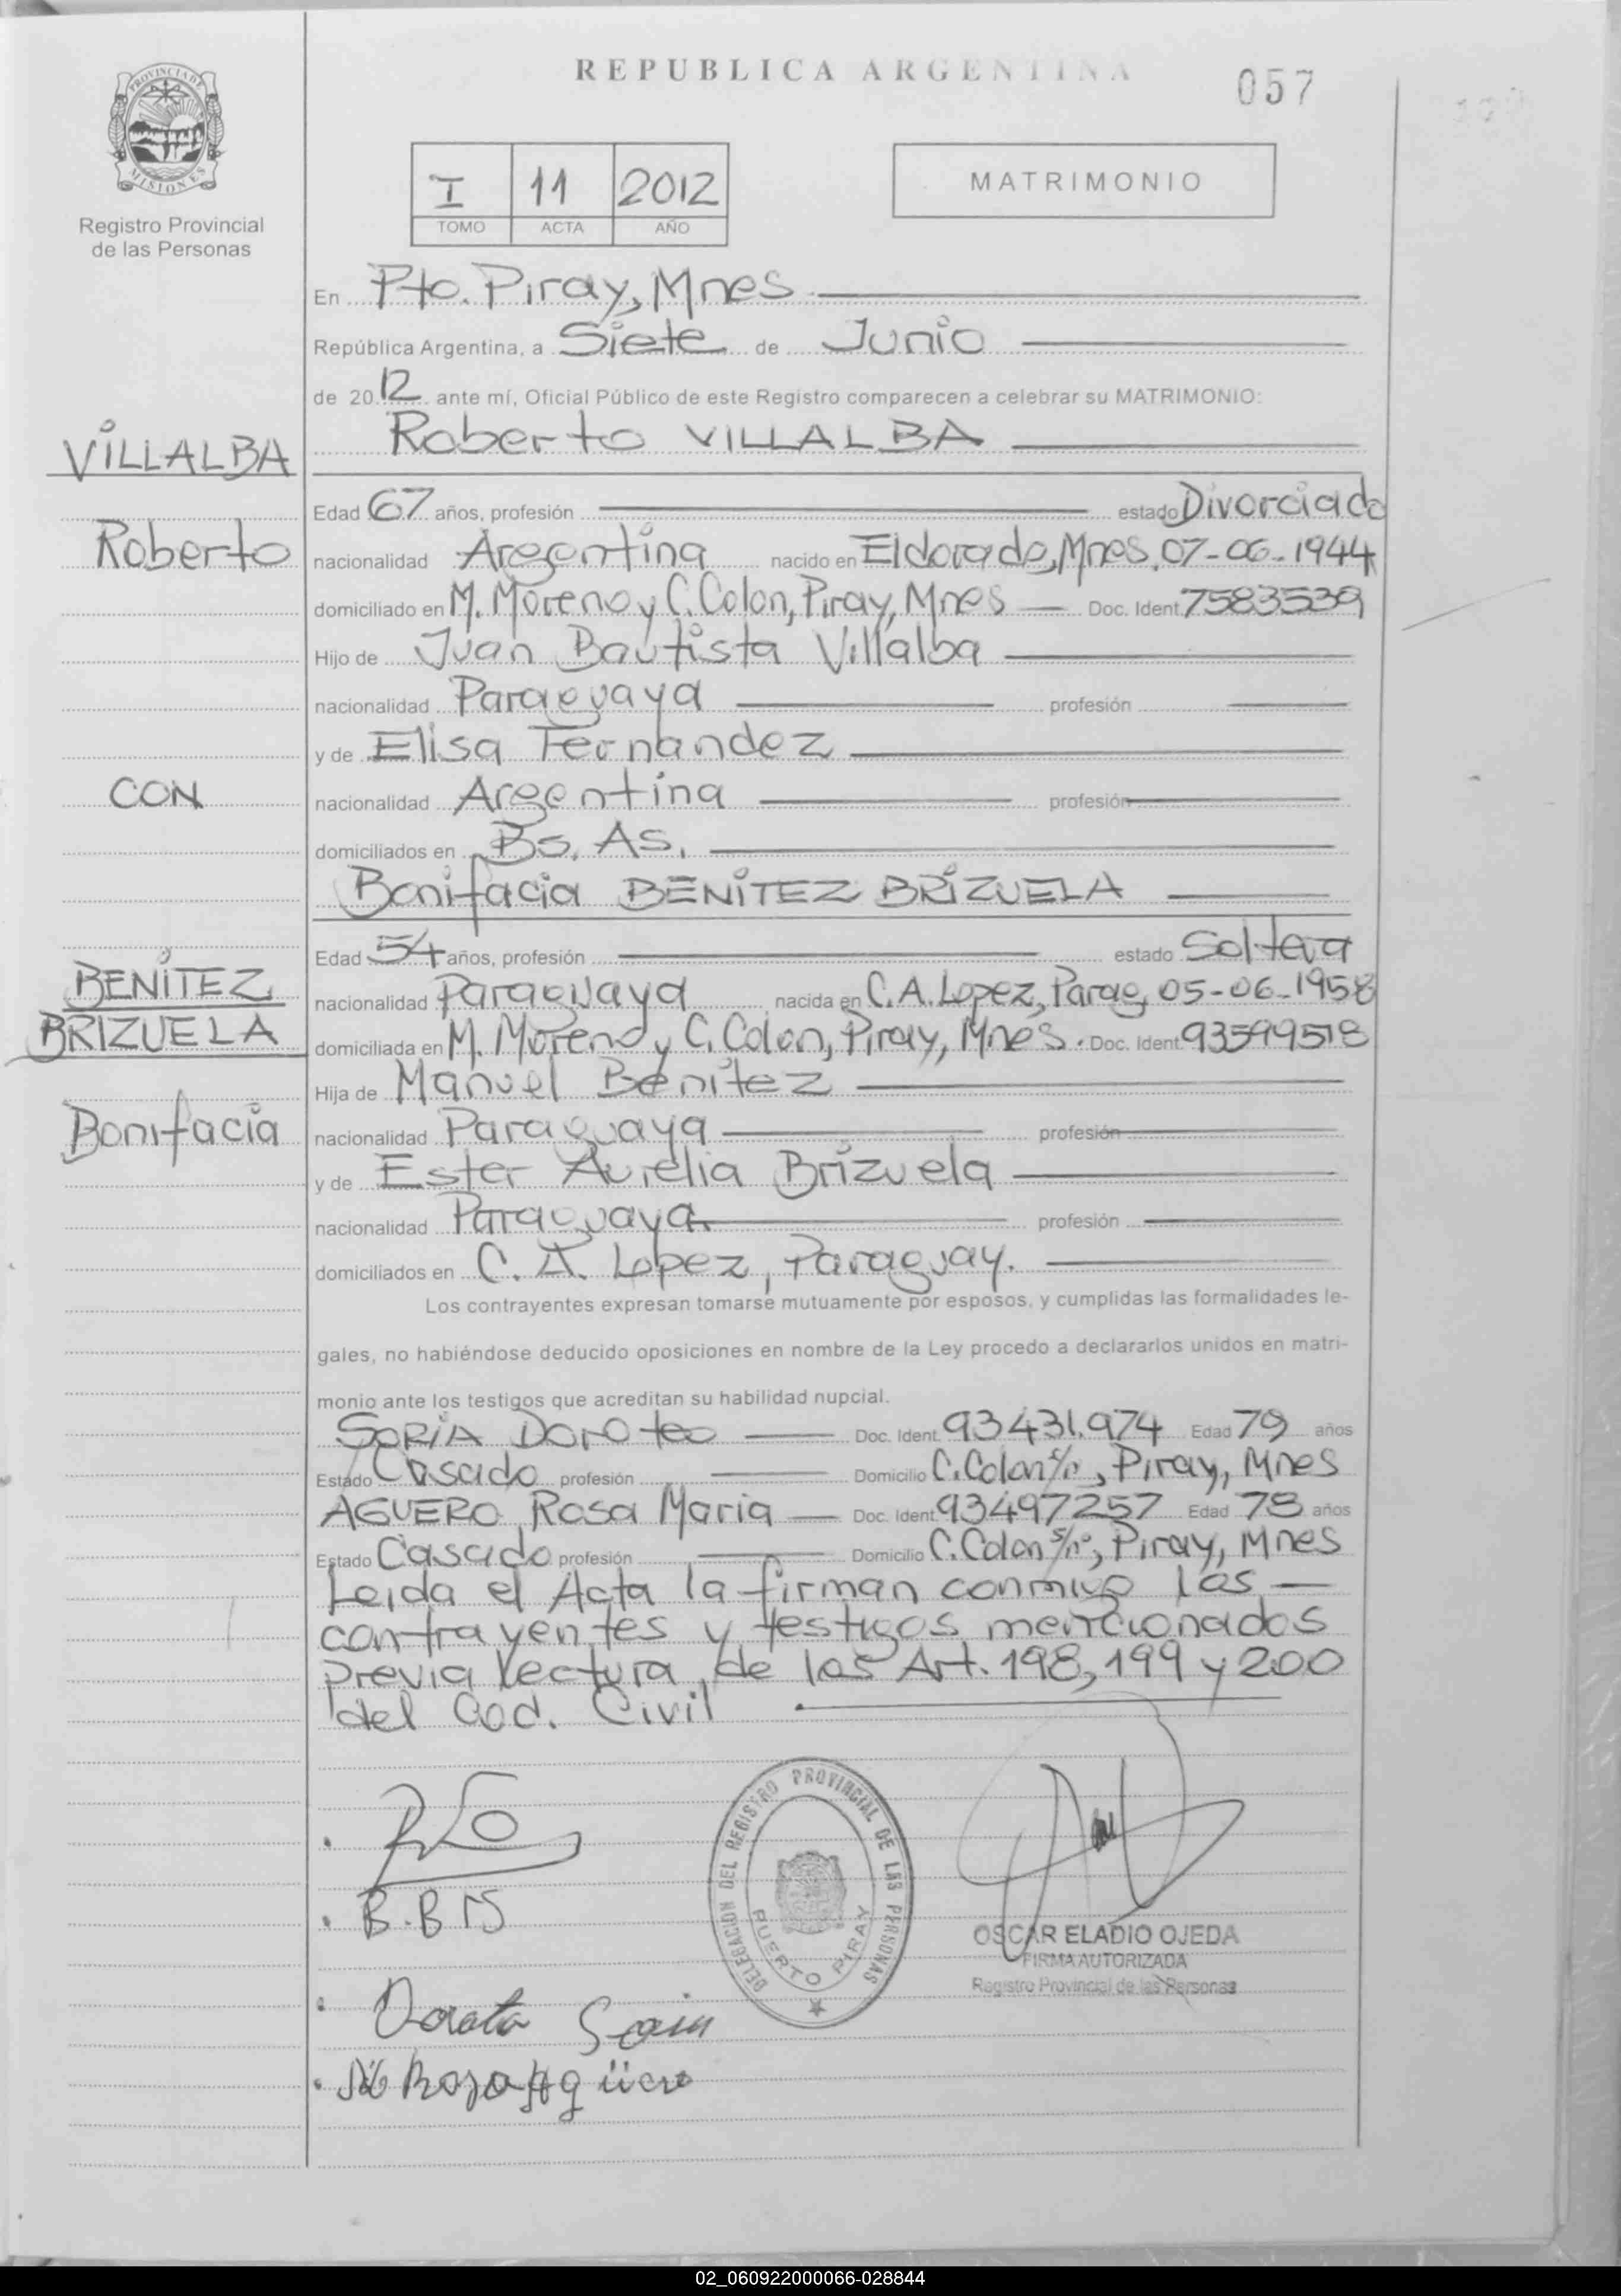 REPUBLICA ARGENTINA
057
PROVINCIA DE
MISIONES
Registro Provincial
de las Personas
I 11 2012
TOMO ACTA AÑO
MATRIMONIO
En Pto. Piray, Mnes
República Argentina, a Siete de Junio
de 2012 ante mí, Oficial Público de este Registro comparecen a celebrar su MATRIMONIO:
Roberto VILLALBA
VILLALBA
Edad 67 años, profesión estado Divorciado
Roberto
nacionalidad Argentina nacido en Eldorado, Mnes, 07-06-1944
domiciliado en M. Moreno y C. Colon, Piray, Mnes Doc. Ident. 7583539
Hijo de Juan Bautista Villalba
nacionalidad Paraguaya profesión
y de Elisa Fernandez
CON
nacionalidad Argentina profesión
domiciliados en Bs. As.
Bonifacia BENITEZ BRIZUELA
Edad 54 años, profesión estado Soltera
BENITEZ
nacionalidad Paraguaya nacida en C.A. Lopez, Parag, 05-06-1958
BRIZUELA
domiciliada en M. Moreno y C. Colon, Piray, Mnes. Doc. Ident. 93599518
Hija de Manuel Benitez
Bonifacia
nacionalidad Paraguaya profesión
y de Ester Aurelia Brizuela
nacionalidad Paraguaya. profesión
domiciliados en C. A. Lopez, Paraguay.
Los contrayentes expresan tomarse mutuamente por esposos, y cumplidas las formalidades le-
gales, no habiéndose deducido oposiciones en nombre de la Ley procedo a declararlos unidos en matri-
monio ante los testigos que acreditan su habilidad nupcial.
SORIA Doroteo Doc. Ident. 93431.974 Edad 79 años
Estado Casado profesión Domicilio C. Colon s/n, Piray, Mnes
AGUERO Rosa Maria Doc. Ident. 93497257 Edad 78 años
Estado Casado profesión Domicilio C. Colon s/nº, Piray, Mnes
Leida el Acta la firman conmigo los
contrayentes y testigos mencionados
previa lectura de los Art. 198, 199 y 200
del Cod. Civil
DELEGACION DEL REGISTRO PROVINCIAL DE LAS PERSONAS
PUERTO PIRAY
B.B
OSCAR ELADIO OJEDA
FIRMA AUTORIZADA
Registro Provincial de las Personas
Rosa Agüero
02_060922000066-028844